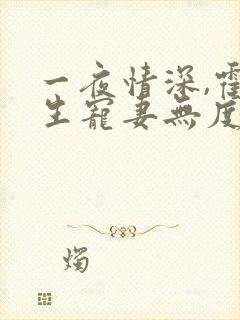 一夜情深,霍
生寵妻無度
燭